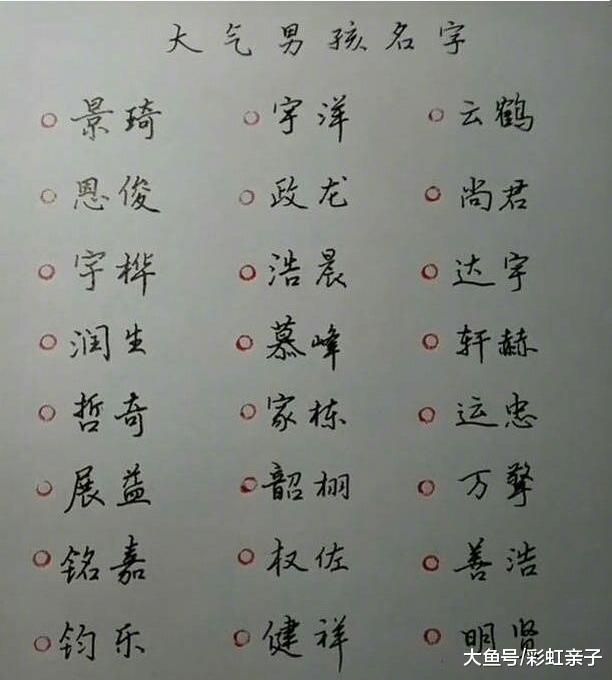 大气男孩名字
景琦 宇洋 云鹤
恩俊 政龙 尚君
宇桦 浩晨 达宇
润生 慕峰 轩赫
哲奇 家栋 运忠
展益 韶栩 万擎
铭嘉 权佐 善浩
钧乐 健祥 明贤
大鱼号/彩虹亲子